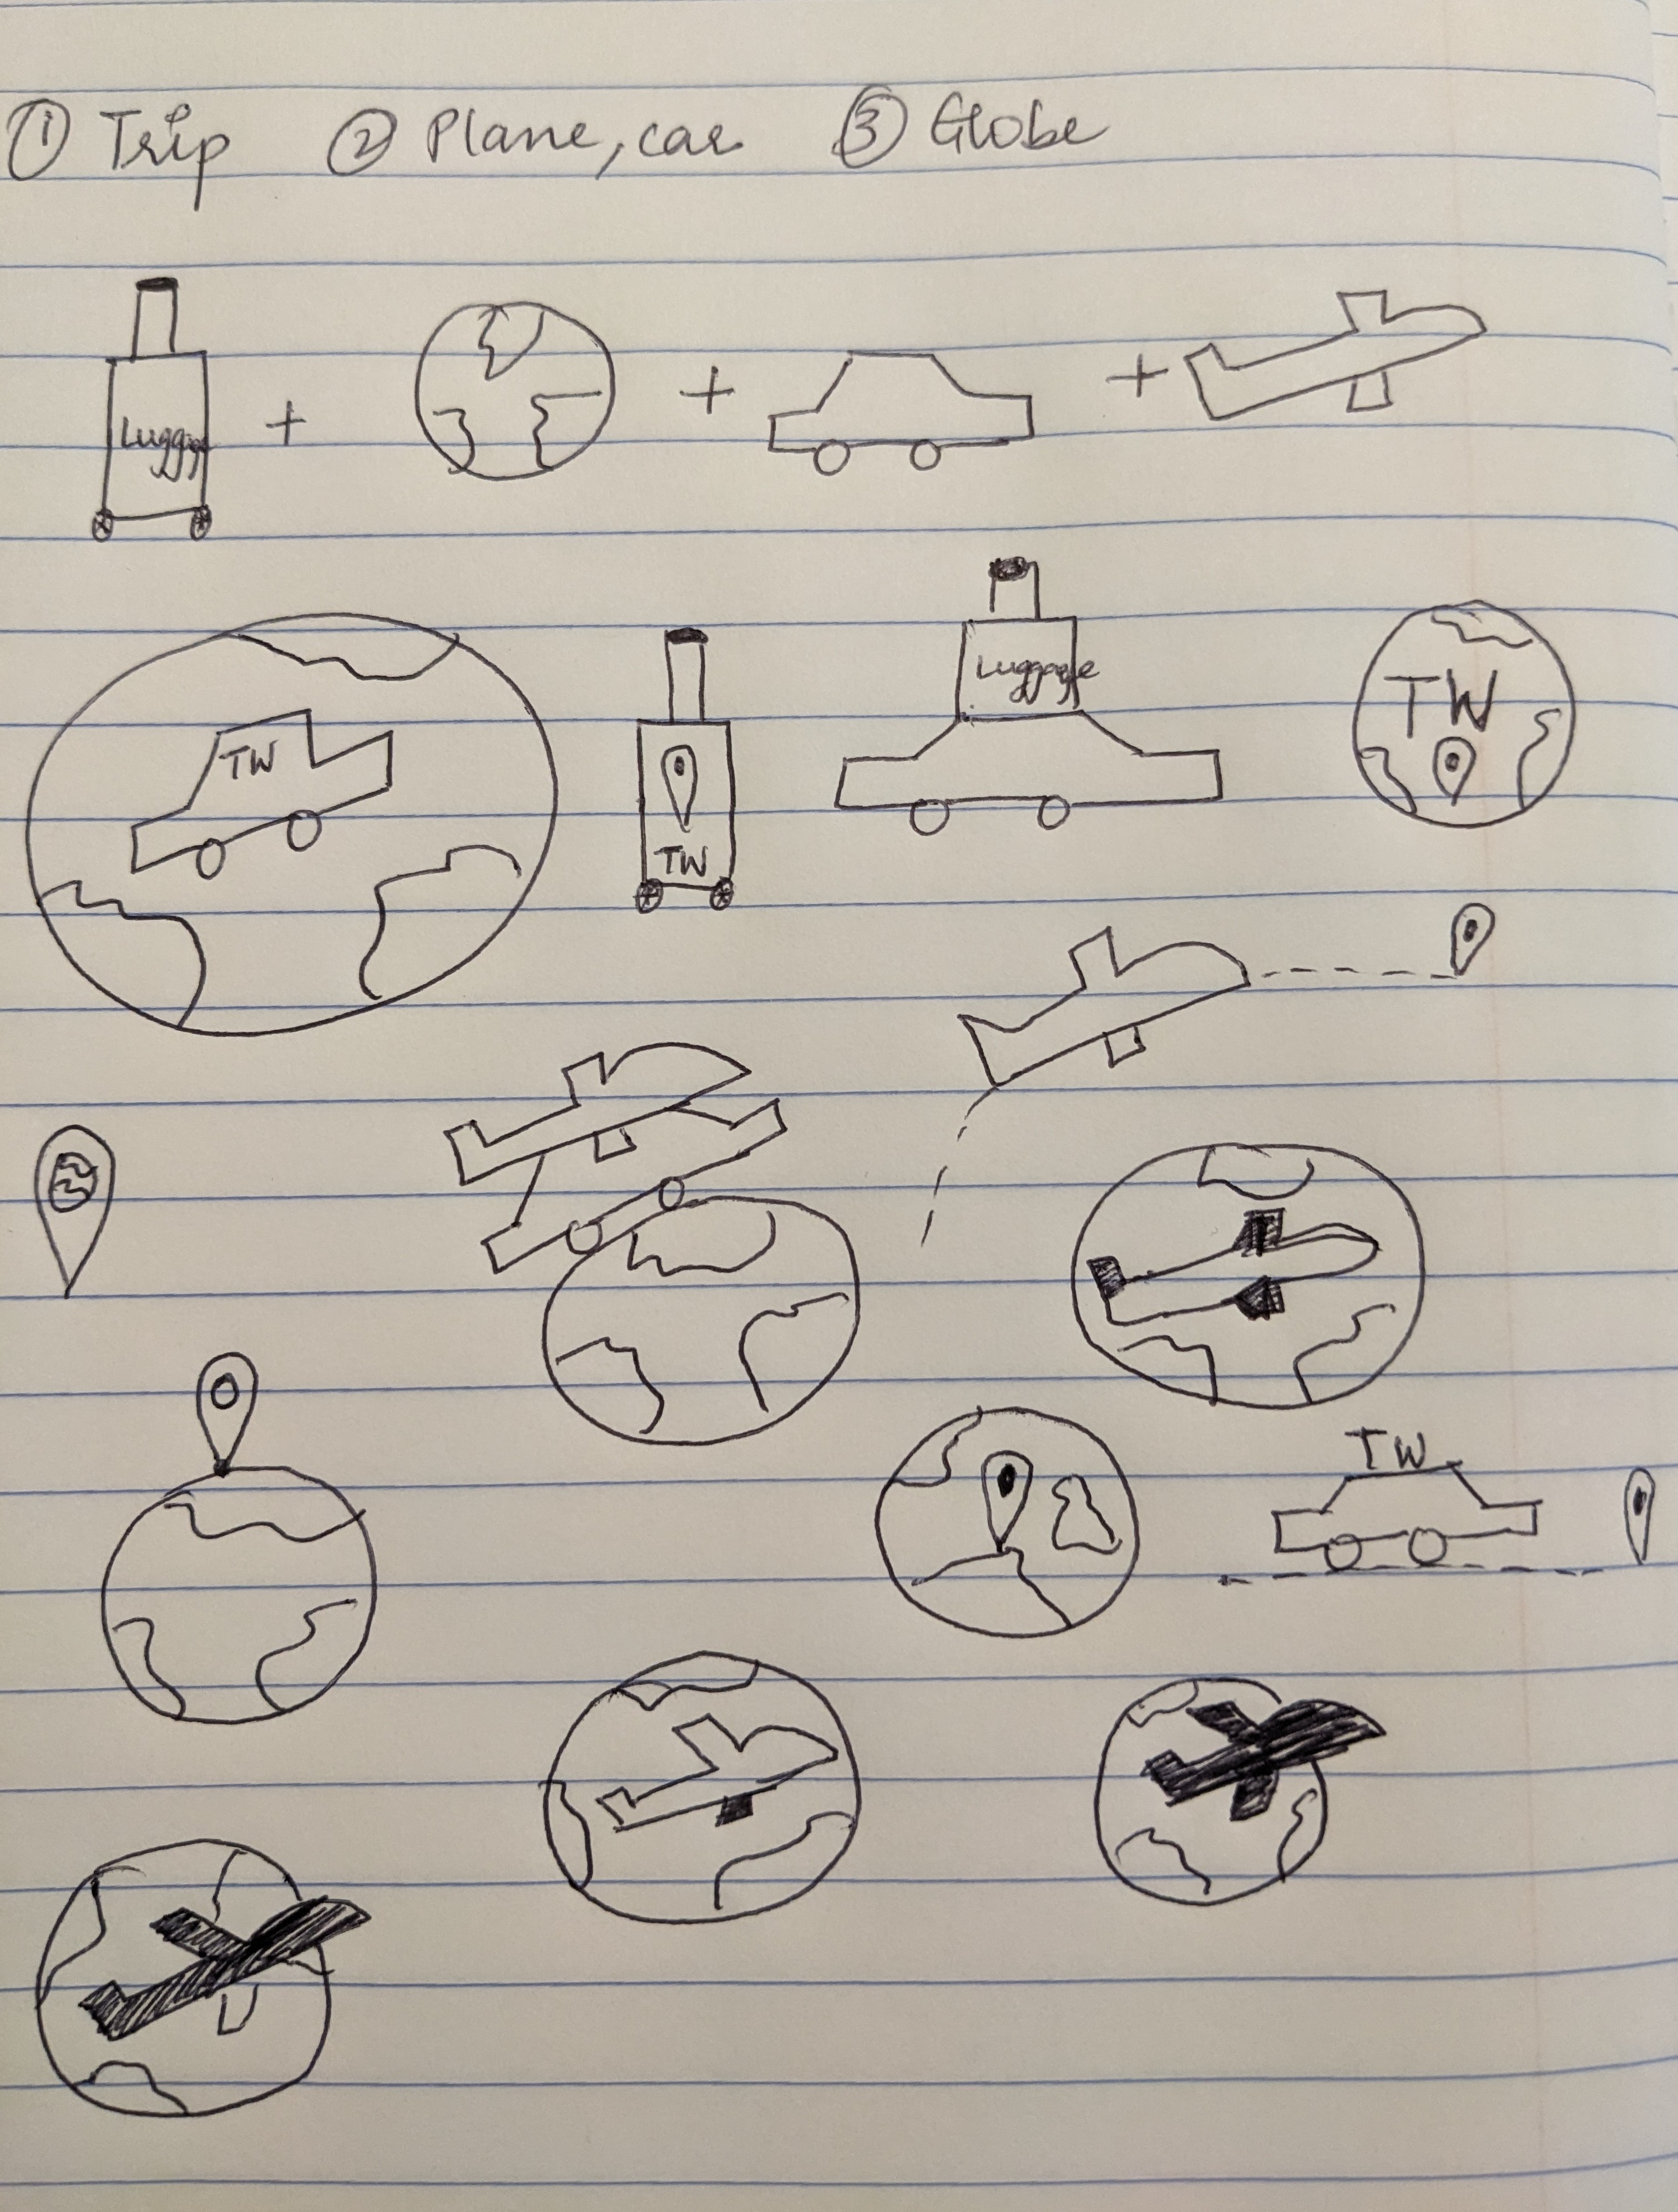 ① Trip ② Plane, car ③ Globe
Luggage
Luggage
TW
TW
TW
TW